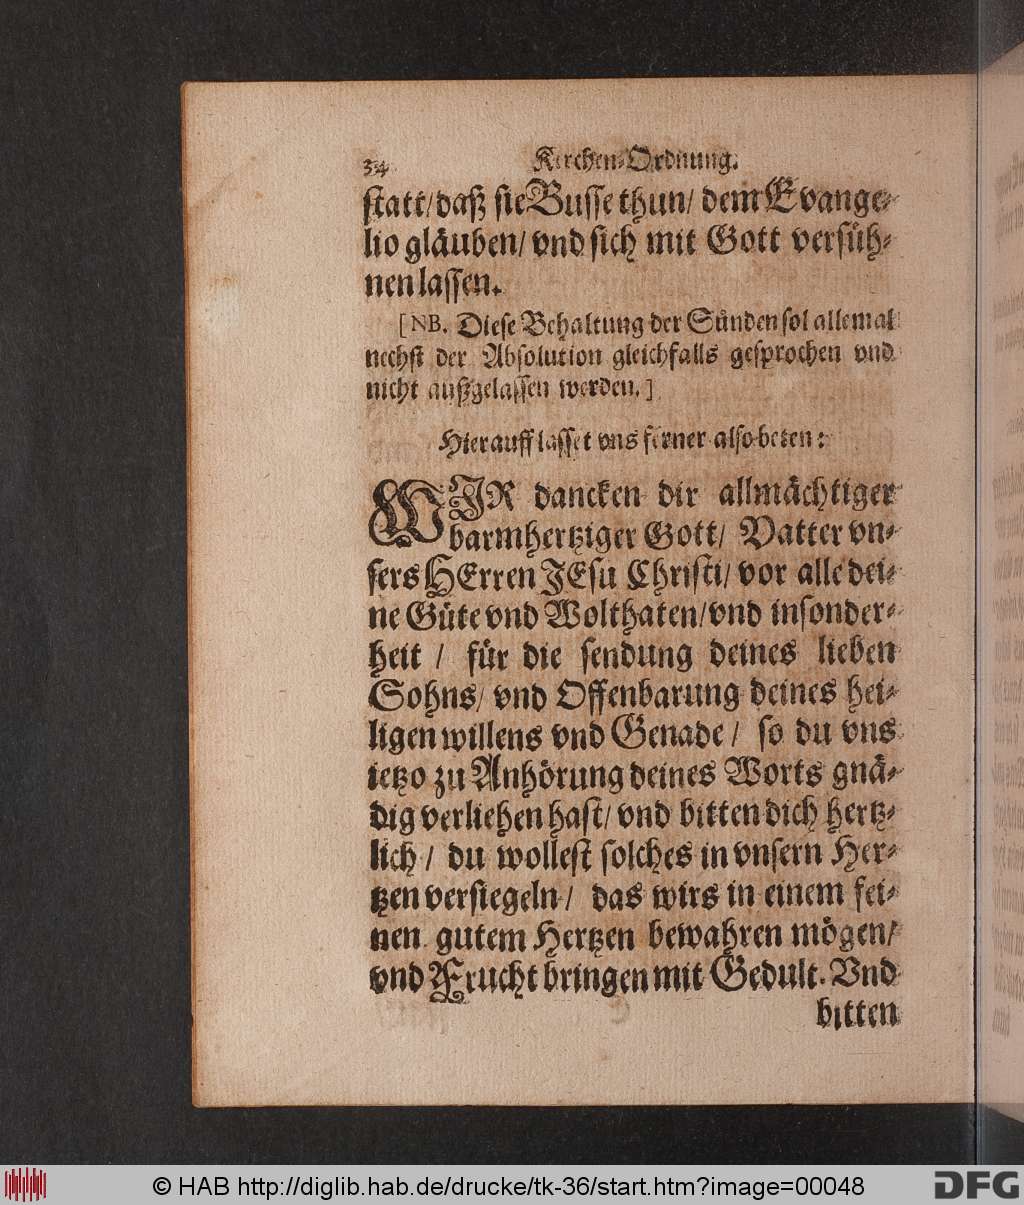 34 Kirchen-Ordnung.
statt/ daß sie Busse thun/ dem Evange-
lio gläuben/ vnd sich mit Gott versüh-
nen lassen.
[NB. Diese Behaltung der Sünden sol allemal
nechst der Absolution gleichfalls gesprochen vnd
nicht außgelassen werden.]
Hierauff lasset vns ferner also beten:
WIR dancken dir allmächtiger
barmhertziger Gott/ Vatter vn-
sers HErren JEsu Christi/ vor alle dei-
ne Güte vnd Wolthaten/ vnd insonder-
heit / für die sendung deines lieben
Sohns/ vnd Offenbarung deines hei-
ligen willens vnd Genade / so du vns
ietzo zu Anhörung deines Worts gnä-
dig verliehen hast/ vnd bitten dich hertz-
lich / du wollest solches in vnsern Her-
tzen versiegeln / das wirs in einem fei-
nen gutem Hertzen bewahren mögen/
vnd Frucht bringen mit Gedult. Vnd
bitten
© HAB http://diglib.hab.de/drucke/tk-36/start.htm?image=00048
DFG